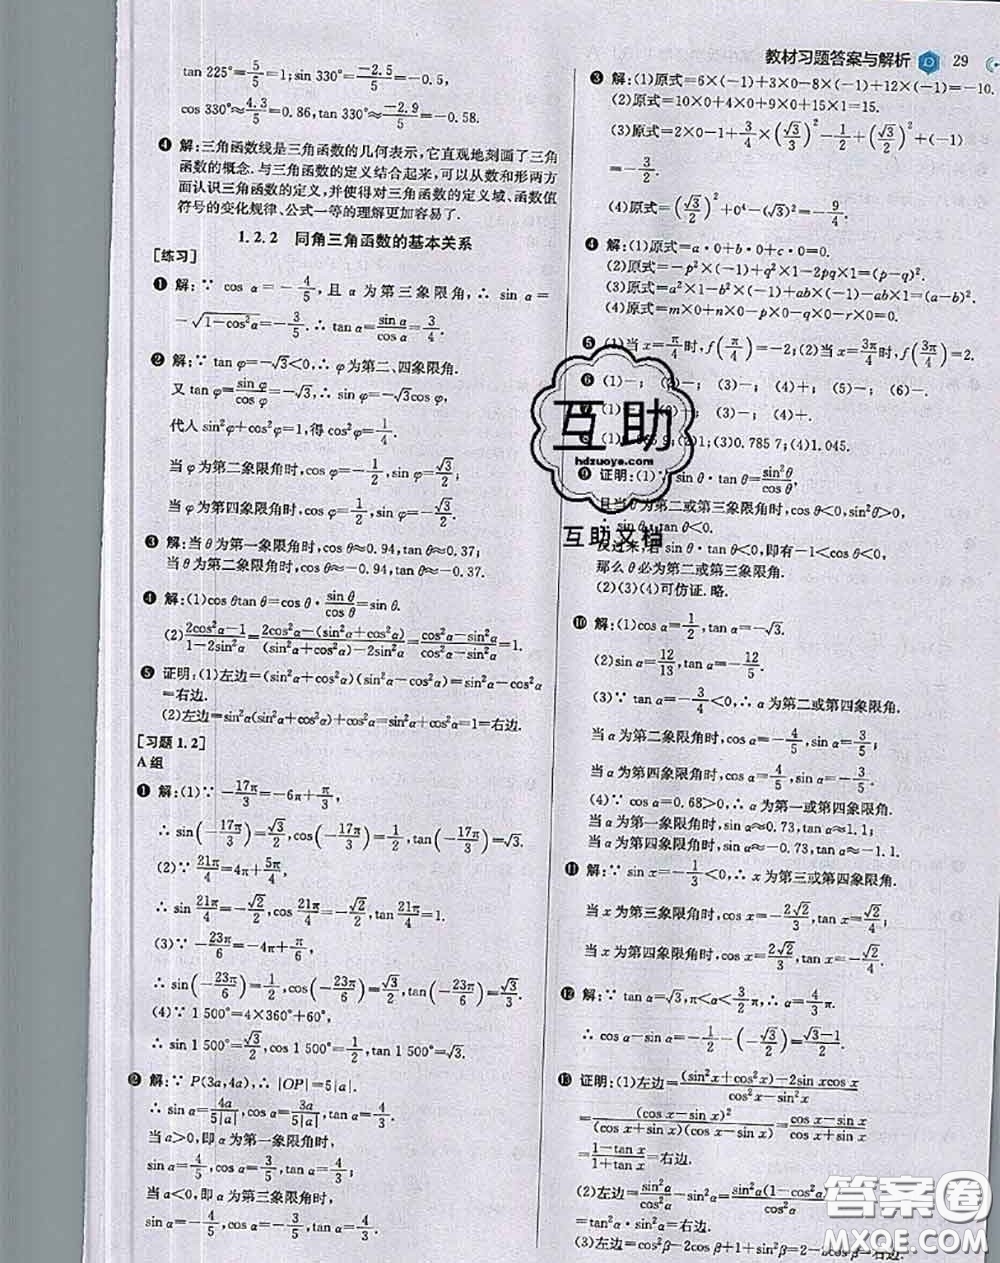 教材习题答案与解析 29
tan 225°≈5/5=1; sin 330°≈-2.5/5=-0.5,
cos 330°≈4.3/5=0.86, tan 330°≈-2.9/5=-0.58.
❹ 解:三角函数线是三角函数的几何表示,它直观地刻画了三角
函数的概念.与三角函数的定义结合起来,可以从数和形两方
面认识三角函数的定义,并使得对三角函数的定义域、函数值
符号的变化规律、公式一等的理解更加容易了.
1.2.2 同角三角函数的基本关系
[练习]
❶ 解:∵ cos α=-4/5,且 α 为第三象限角,∴ sin α=
-√(1-cos²α)=-3/5.∴ tan α=sin α/cos α=3/4.
❷ 解:∵ tan φ=-√3<0,∴ φ为第二、四象限角.
又 tan φ=sin φ/cos φ=-√3,∴ sin φ=-√3cos φ,
代入 sin²φ+cos²φ=1,得 cos²φ=1/4.
当 φ 为第二象限角时,cos φ=-1/2,sin φ=√3/2.
当 φ 为第四象限角时,cos φ=1/2,sin φ=-√3/2.
❸ 解:当 θ 为第一象限角时,cos θ≈0.94,tan θ≈0.37;
当 θ 为第二象限角时,cos θ≈-0.94,tan θ≈-0.37.
❹ 解:(1)cos θtan θ=cos θ·sin θ/cos θ=sin θ.
(2)(2cos²α-1)/(1-2sin²α)=(2cos²α-(sin²α+cos²α))/((sin²α+cos²α)-2sin²α)=(cos²α-sin²α)/(cos²α-sin²α)=1.
❺ 证明:(1)左边=(sin²α+cos²α)(sin²α-cos²α)=sin²α-cos²α
=右边.
(2)左边=sin²α(sin²α+cos²α)+cos²α=sin²α+cos²α=1=右边.
[习题 1.2]
A 组
❶ 解:(1)∵ -17π/3=-6π+π/3,
∴ sin(-17π/3)=√3/2,cos(-17π/3)=1/2,tan(-17π/3)=√3.
(2)∵ 21π/4=4π+5π/4,
∴ sin 21π/4=-√2/2,cos 21π/4=-√2/2,tan 21π/4=1.
(3)∵ -23π/6=-4π+π/6,
∴ sin(-23π/6)=1/2,cos(-23π/6)=√3/2,tan(-23π/6)=√3/3.
(4)∵ 1 500°=4×360°+60°,
∴ sin 1 500°=√3/2,cos 1 500°=1/2,tan 1 500°=√3.
❷ 解:∵ P(3a,4a),∴ |OP|=5|a|.
∴ sin α=4a/5|a|,cos α=3a/5|a|,tan α=4/3.
当 a>0,即 α 为第一象限角时,
sin α=4/5,cos α=3/5,tan α=4/3.
当 a<0,即 α 为第三象限角时,
sin α=-4/5,cos α=-3/5,tan α=4/3.
❸ 解:(1)原式=6×(-1)+3×0-8×(-1)+12×(-1)=-10.
(2)原式=10×0+4×0+9×0+15×1=15.
(3)原式=2×0-1+3/4×(√3/3)²-1/2+(√3/2)²+(-1)
=-3/2.
(4)原式=(√3/2)²+0⁴-(√3)²=-9/4.
❹ 解:(1)原式=a·0+b·0+c·0=0.
(2)原式=-p²×(-1)+q²×1-2pq×1=(p-q)².
(3)原式=a²×1-b²×(-1)+ab×(-1)-ab×1=(a-b)².
(4)原式=m×0+n×0-p×0-q×0-r×0=0.
❺ (1)当 x=π/4时,f(π/4)=-2;(2)当 x=3π/4时,f(3π/4)=2.
❻ (1)-; (2)-; (3)-; (4)+; (5)-; (6)-.
(3)-; (4)+.
(3)0.785 7;(4)1.045.
❾ 证明:(1)∵ sin θ·tan θ=sin²θ/cos θ,
且当 θ 为第二或第三象限角时,cos θ<0,
∴ sin θ·tan θ<0.
反过来,若 sin θ·tan θ<0,即有-1<cos θ<0,
那么 θ 必为第二或第三象限角.
(2)(3)(4)可仿证.略.
❿ 解:(1)cos α=1/2,tan α=-√3.
(2)sin α=12/13,tan α=-12/5.
(3)∵ tan α=-3/4<0,∴ α 为第二或第四象限角.
当 α 为第二象限角时,cos α=-4/5,sin α=3/5;
当 α 为第四象限角时,cos α=4/5,sin α=-3/5.
(4)∵ cos α=0.68>0,∴ α 为第一或第四象限角.
当 α 为第一象限角时,sin α≈0.73,tan α≈1.1;
当 α 为第四象限角时,sin α≈-0.73,tan α≈-1.1.
⓫ 解:∵ sin x=-1/3<0,∴ x 为第三或第四象限角.
当 x 为第三象限角时,cos x=-2√2/3,tan x=√2/4;
当 x 为第四象限角时,cos x=2√2/3,tan x=-√2/4.
⓬ 解:∵ tan α=√3,π<α<3/2π,∴ α=4/3π.
∴ cos α-sin α=-1/2-(-√3/2)=(√3-1)/2.
⓭ 证明:(1)左边=((sin²x+cos²x)-2sin xcos x)/(cos²x-sin²x)
=(cos x-sin x)²/((cos x+sin x)(cos x-sin x))=(cos x-sin x)/(cos x+sin x)
=(1-tan x)/(1+tan x)=右边.
(2)左边=sin²α/cos²α-sin²α=sin²α(1-cos²α)/cos²α
=tan²α·sin²α=右边.
(3)左边=cos²β-2cos β+1+sin²β=2-2cos β=右边.
互助
hdzuoye.com
互助文档
答案圈
MXQE.COM